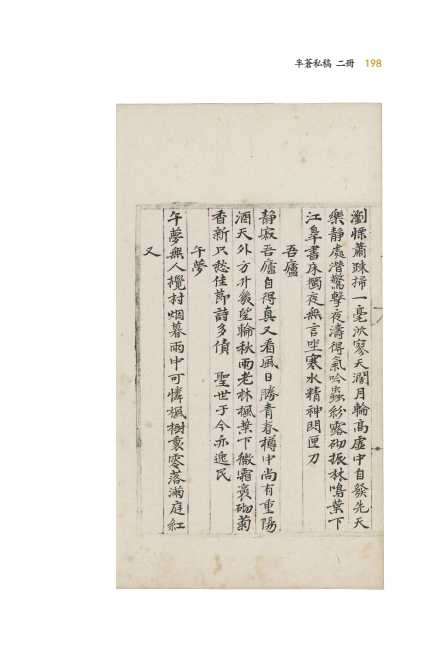 半蒼私稿 二冊 198
瀏慄蕭疎掃一毫泬寥天濶月輪高虛中自發先天
樂靜處潛驚擊夜濤得氣吟蟲紛露砌振林鳴葉下
江皐書床獨夜無言坐寒水精神閟匣刀
吾廬
靜寂吾廬自得眞又看風日勝青春樽中尚有重陽
酒天外方升幾望輪秋雨老林楓葉下微霜裛砌菊
香新只愁佳節詩多債 聖世于今亦逸民
午夢
午夢無人攪村烟暮雨中可憐楓樹裏零落滿庭紅
又